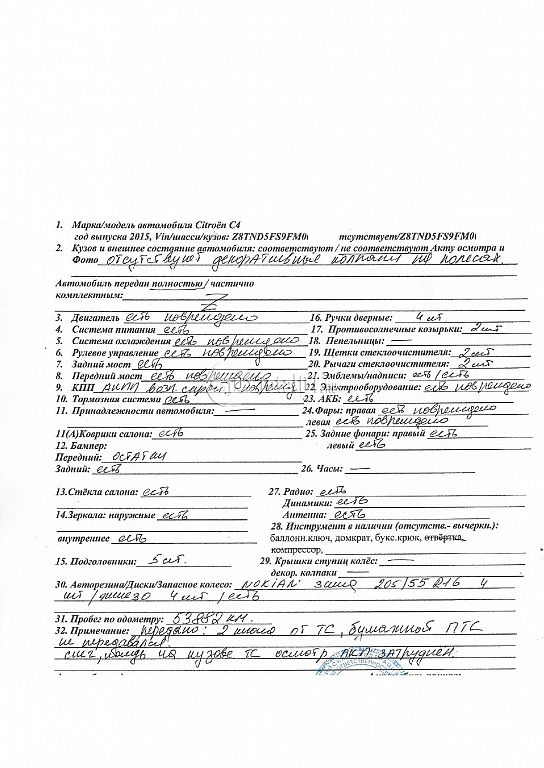 1. Марка/модель автомобиля Citroën C4
год выпуска 2015, Vin/шасси/кузов: Z8TND5FS9FM0 тсутствует/Z8TND5FS9FM0
2. Кузов и внешнее состояние автомобиля: соответствуют / не соответствуют Акту осмотра и
Фото отсутствуют декоративные колпаки на колесах
Автомобиль передан полностью / частично
комплектным: Z
3. Двигатель есть повреждено
4. Система питания есть
5. Система охлаждения есть повреждено
6. Рулевое управление есть повреждено
7. Задний мост есть
8. Передний мост есть повреждено
9. КПП АКПП поврежд
10. Тормозная система есть
11. Принадлежности автомобиля: —
11(А)Коврики салона: есть
12. Бампер:
Передний: остатки
Задний: есть
13.Стёкла салона: есть
14.Зеркала: наружные есть
внутреннее есть
15. Подголовники: 5 шт.
16. Ручки дверные: 4 шт
17. Противосолнечные козырьки: 2 шт
18. Пепельницы: —
19. Щетки стеклоочистителя: 2 шт
20. Рычаги стеклоочистителя: 2 шт
21. Эмблемы/надписи: есть / есть
22. Электрооборудование: есть повреждено
23. АКБ: есть
24.Фары: правая есть повреждено
левая есть повреждено
25. Задние фонари: правый есть
левый есть
26. Часы: —
27. Радио: есть
Динамики: есть
Антенна : есть
28. Инструмент в наличии (отсутств.- вычеркн.):
баллонн.ключ, домкрат, букс.крюк, отвёртка,
компрессор,
29. Крышки ступиц колёс: —
декор. колпаки —
30. Авторезина/Диски/Запасное колесо: NOKIAN зима 205/55 R16 4
шт / железо 4 шт / есть
31. Пробег по одометру: 53852 км.
32. Примечание: передано: 2 ключа от ТС, бумажной ПТС
не передавался.
снег, на кузове ТС осмотр ЛКП затруднен.